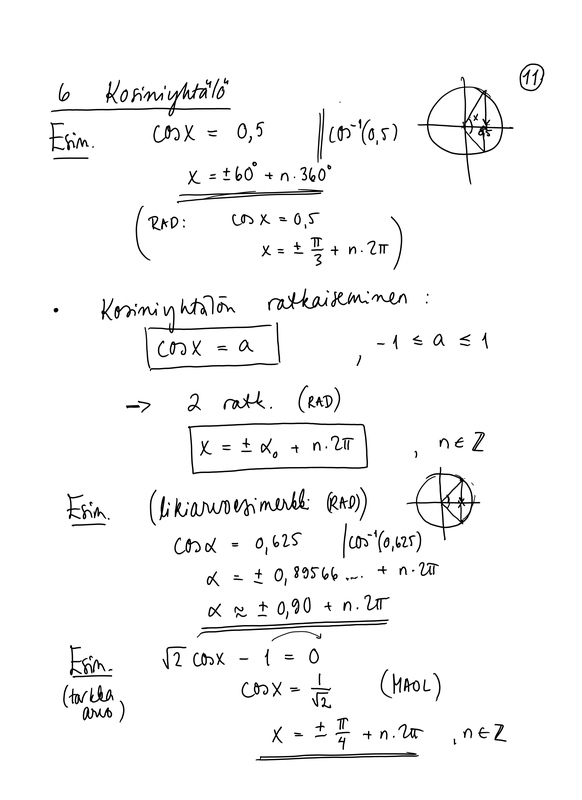 11
6 Kosiniyhtälö
Esim. cos x = 0,5 || cos⁻¹(0,5)
x = ±60° + n·360°
(RAD: cos x = 0,5
x = ± π/3 + n·2π)
• Kosiniyhtälön ratkaiseminen :
cos x = a , -1 ≤ a ≤ 1
→ 2 ratk. (RAD)
x = ± α₀ + n·2π , n ∈ ℤ
Esim. (likiarvoesimerkki (RAD))
cos α = 0,625 | cos⁻¹(0,625)
α = ± 0,89566 .... + n·2π
α ≈ ± 0,90 + n·2π
Esim. √2 cos x - 1 = 0
(tarkka arvo) cos x = 1/√2 (MAOL)
x = ± π/4 + n·2π , n ∈ ℤ